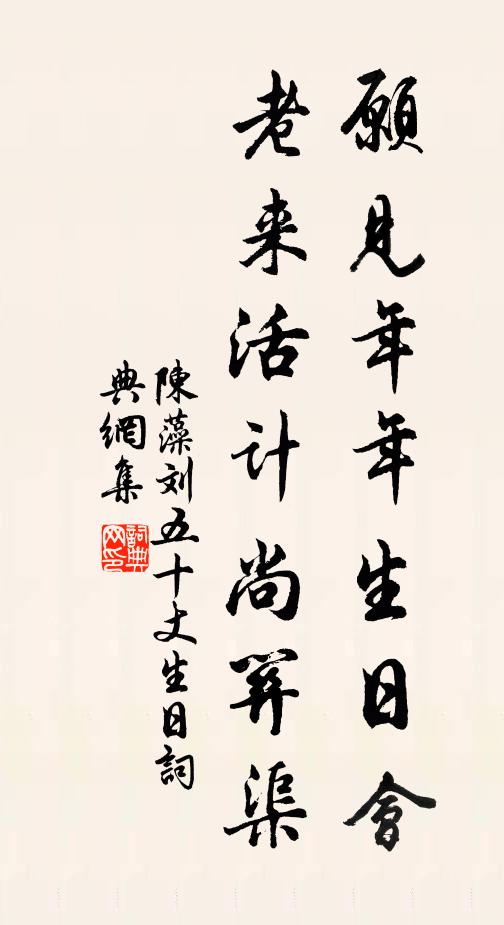 願見年年生日會
老来活计尚羿渠
陳藻刘五十丈生日詞
典網集
詞典
网印